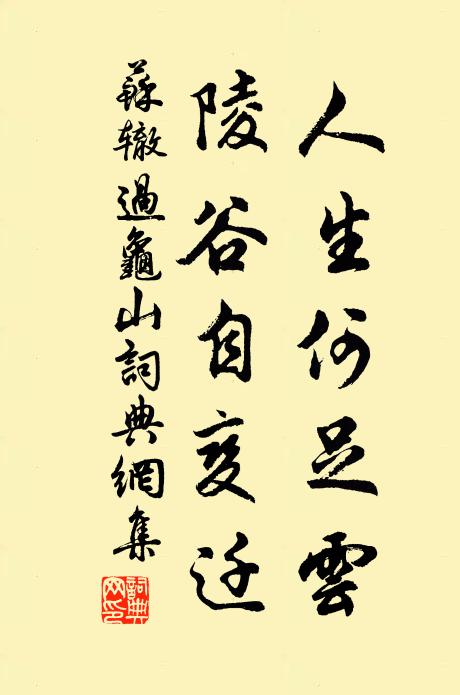 人生何足雲
陵谷自变迁
蘇辙過龜山詞典網集
詞典网印